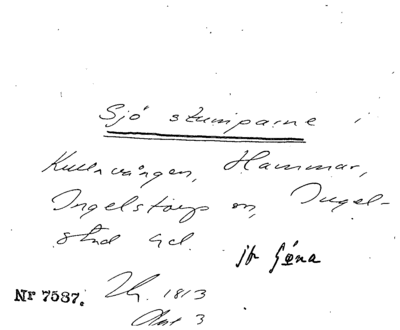 Sjö stumparne i
Kullavången, Hammar,
Ingelstorp sn, Ingel-
stad hd.
jfr Göna
Nr 7587. Lh. 1813
Akt 3